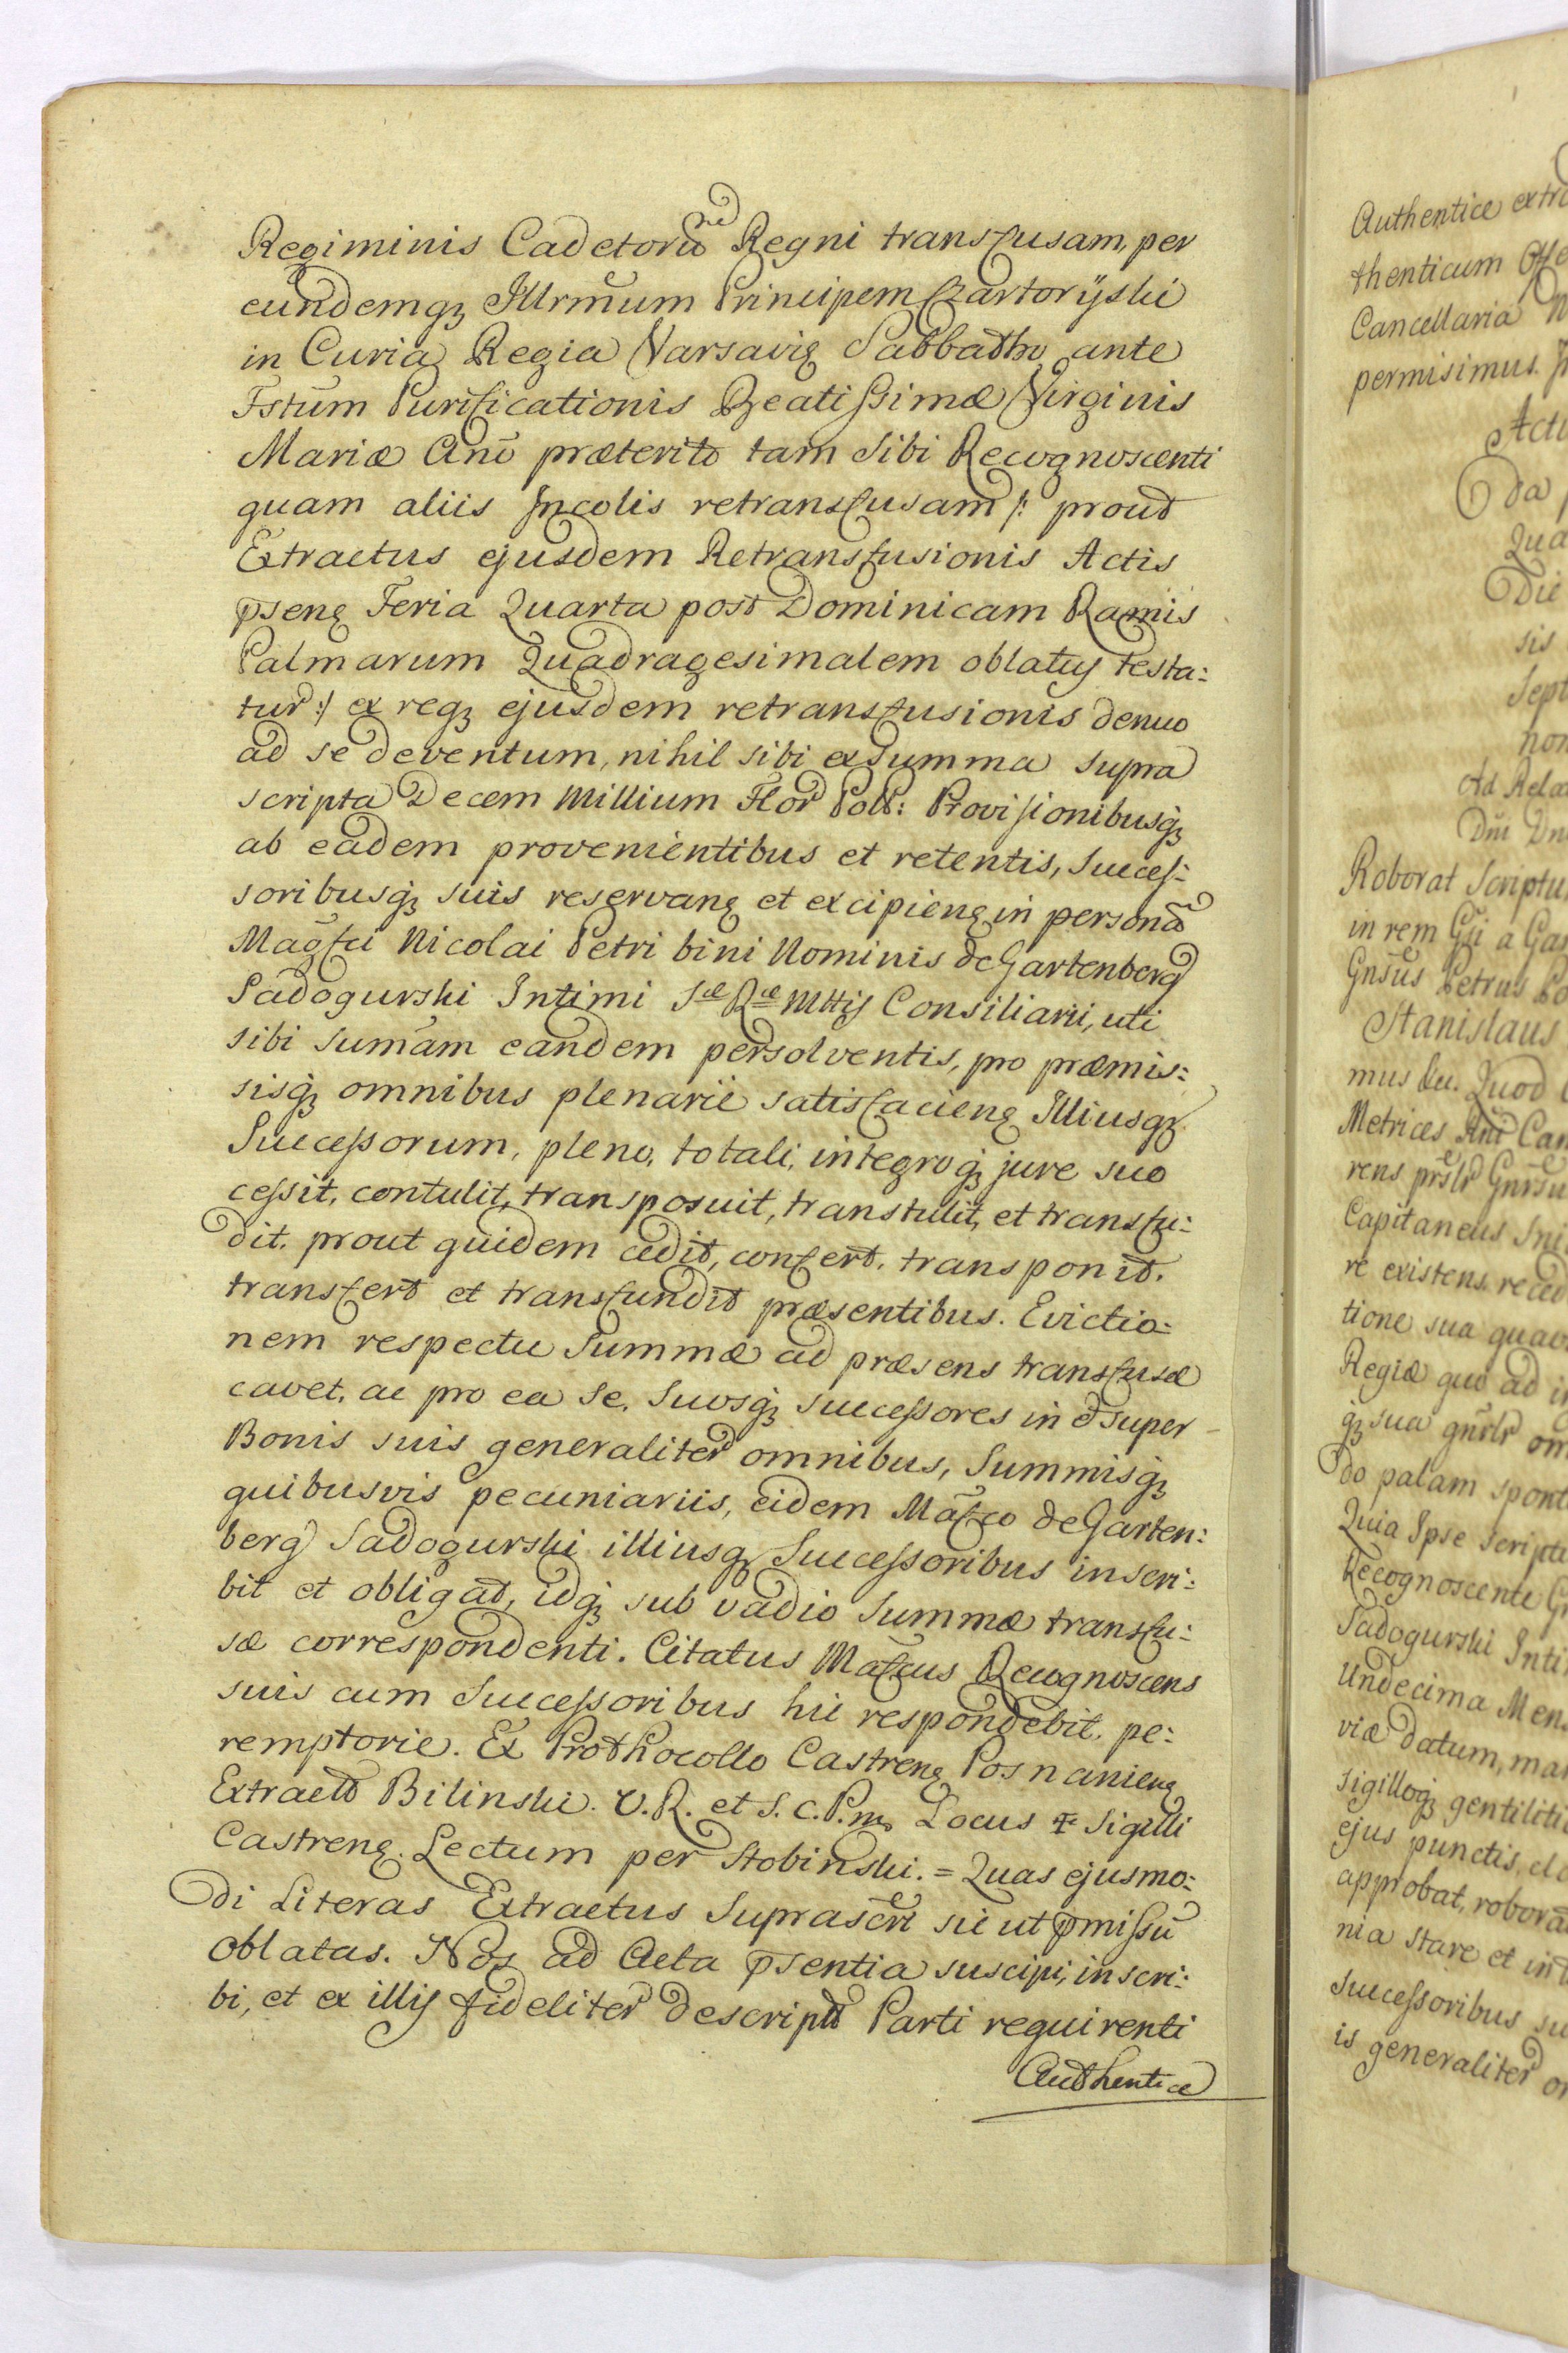 Regiminis Cadetorũ Regni transfusam, per
eundemq₃ Illrm̃um Principem Czartoryski
in Curia Regia Varsavię Sabbatho ante
Fstũm Purificationis Beatissimæ Virginis
Mariæ Anõ præterito tam sibi Recognoscenti
quam aliis Incolis retransfusam /: prout
Extractus ejusdem Retransfusionis Actis
p̃senę Feria Quarta post Dominicam Ramis
Palmarum Quadragesimalem oblatus testa:
tur :/ ex reqȝ ejusdem retransfusionis denuo
ad se deventum, nihil sibi ex Summa supra
scripta Decem Millium Flor Poll: Provisionibusqȝ
ab eadem provenientibus et retentis, Succes:
soribusqȝ suis reservanę et excipienę in persona
Mag̃fci Nicolai Petri bini Nominis de Gartenberg
Sadogurski Intimi Sæ Ræ Mttis Consiliarii, uti
sibi sum̃am eandem persolventis, pro præmis:
sisqȝ omnibus plenarie satisfacienę Illiusqȝ
Successorum, pleno, totali, integroqȝ jure suo
cessit, contulit, transposuit, transtulit, et transfu:
dit. prout quidem cedit, confert. transponit.
transfert et transfundit præsentibus. Evictio:
nem respectu Summæ ad præsens transfusæ
cavet, ac pro ea Se, Suosqȝ successores in et super
Bonis suis generaliter omnibus, Summisqȝ
quibusvis pecuniariis, eidem Mãfco de Garten:
berg Sadogurski illiusqȝ Successoribus inscri:
bit et obligat, idqȝ sub vadio Summæ transfu:
sæ correspondenti. Citatus Mãfcus Recognoscens
suis cum Successoribus hic respondebit. pe:
remptorie. Ex Prothocollo Castrenę Posnanienę
Extractũ Bilinski. V.R. et S.C.P.mp Locus ✝ Sigilli
Castrenę. Lectum per Stobinski. = Quas ejusmo:
di Literas Extractus Suprascr̃i sic ut p̃missũ
oblatas. Nos ad Acta p̃sentia suscipi, inscri:
bi, et ex illis fideliter descriptũ Parti requirenti
Authentice
Authentice extra
thenticum
Cancellaria
permisimus.
Actu
Da
Qua
Die
sis
Sept
non
Ad Rela
Dñi Dn
Roborat Scriptu
in rem Gñi a Gar
Gnsũs Petrus
Stanislaus
mus &c. Quod
Metrices Can
rens
Capitaneus
re existens. reced
tione sua quav
Regiæ quo ad
qȝ sua gnrlr om̃
do palam spont
Quia Ipse scripti
Recognoscente
Sadogurski Inti
Undecima Mens
viæ datum, man
sigilloqȝ gentiliti
ejus punctis, cl
approbat, robora
nia stare et in
Successoribus su
is generaliter